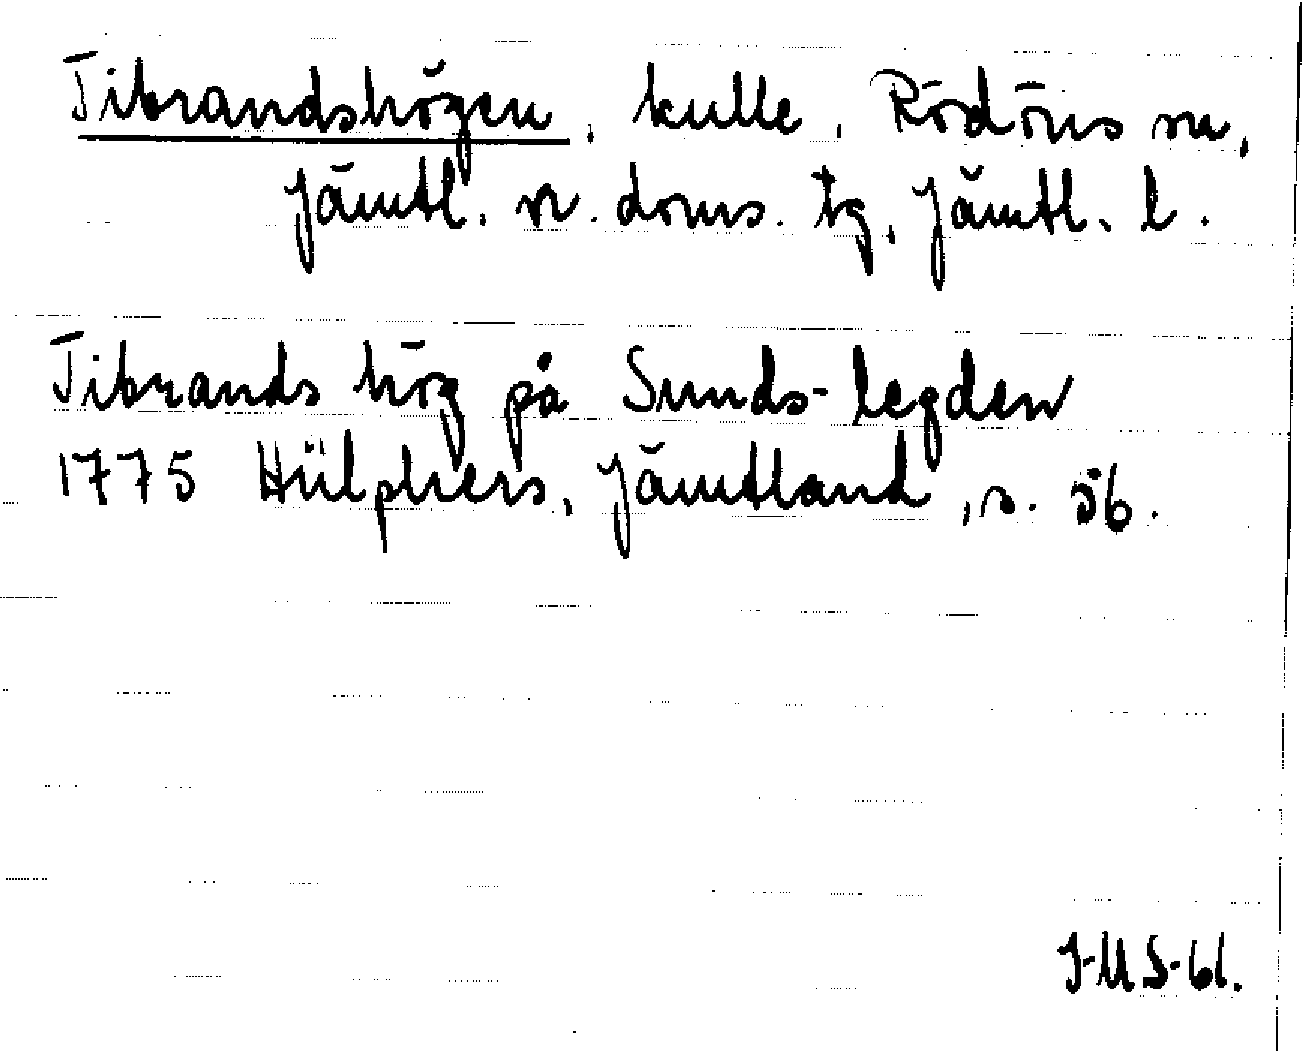 Tibrandshögen, kulle, Rödöns sn,
Jämtl. v. doms. tg, Jämtl. l.
Tibrands hög på Sunds-legden
1775 Hülphers, Jämtland, s. 56.
J-U S-61.